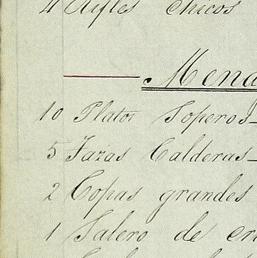 4 Rifles chicos
Mena
10 Platos Soperos
5 Tazas Calderas
2 Copas grandes
1 Salero de cris